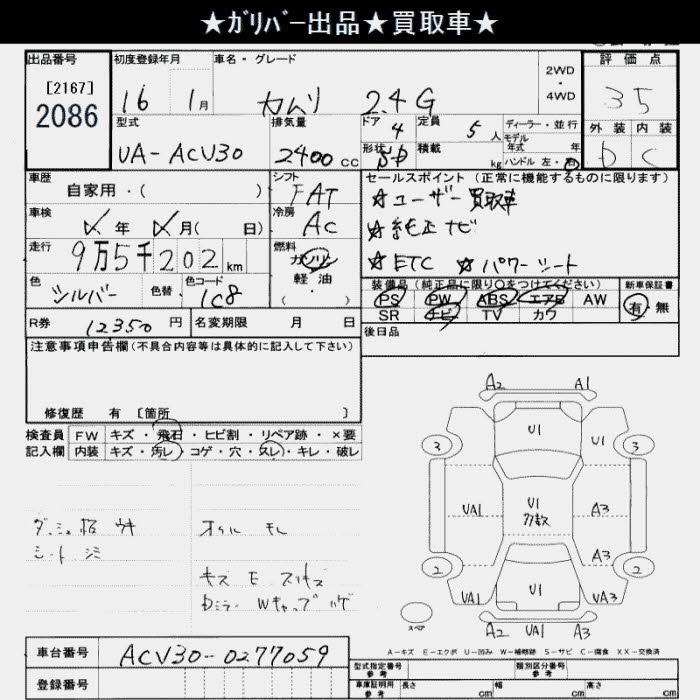 ★ガリバー出品★買取車★
出品番号 初度登録年月 車名・グレード 2WD ・ 4WD 評価点
[2167]
2086
16 1月 カムリ 2.4G 35
型式 排気量 ドア 定員 ディーラー・並行 外装 内装
4 5人 モデル年式 年
UA-ACV30 2400cc 形状 積載 kg ハンドル 左・右 D C
車歴 シフト セールスポイント(正常に機能するものに限ります)
自家用・( ) FAT ☆ユーザー買取車
車検 年 月( 日) 冷房 AC ☆純正ナビ
走行 9万5千202km 燃料 ガソリン ☆ETC ☆パワーシート
軽油
( )
色 シルバー 色替 色コード 1C8
装備品(純正品に限り○をつけてください) 新車保証書
PS PW ABS エアB AW 有・無
SR ナビ TV カワ
R券 12350円 名変期限 月 日 後日品
注意事項申告欄(不具合内容等は具体的に記入して下さい)
修復歴 有 [箇所 ]
検査員 FW キズ・飛石・ヒビ割・リペア跡・×要
記入欄 内装 キズ・汚レ・コゲ・穴・スレ・キレ・破レ
ダッシュ板 ウキ
シート シミ
オイル モレ
キズ E スリキズ
A2 A1
U1
3 U1 3
UA1 U1 多数 A3
A3
2 U1 2
UA1 UA3
スペア A2 UA1 A3
A-キズ E-エクボ U-凹み W-補修跡 S-サビ C-腐食 XX-交換済
車台番号 ACV30-0277059
登録番号
型式指定番号 参考 類別区分番号 参考
車庫証明用 参考 長さ cm 幅 cm 高さ cm